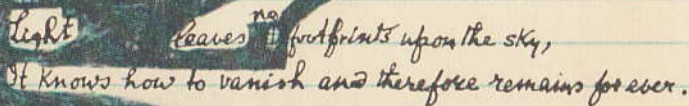 Light leaves no footprints upon the sky,
It knows how to vanish and therefore remains for ever.